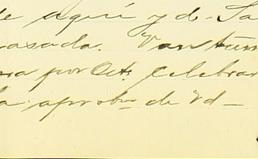 de aquí y de Sa
casada. Van tum
na por Oct. celebrar
la aprobn. de Vd -